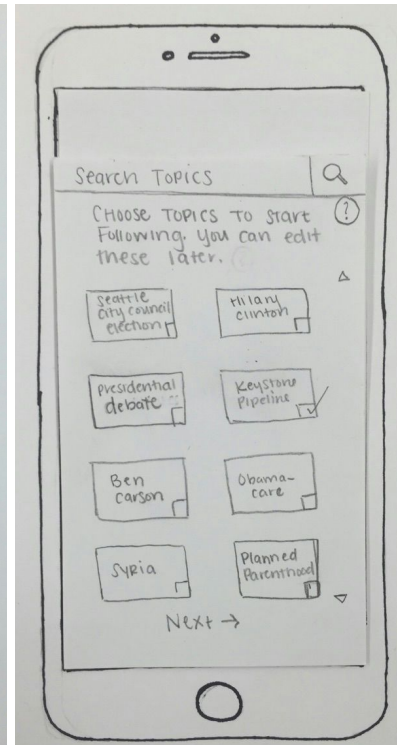 Search Topics
CHOOSE TOPICS TO START
Following. You can edit
these later.
?
Seattle
city council
election
Hilary
clinton
Presidential
debate
Keystone
Pipeline
Ben
carson
Obama-
care
Syria
Planned
Parenthood
Next →